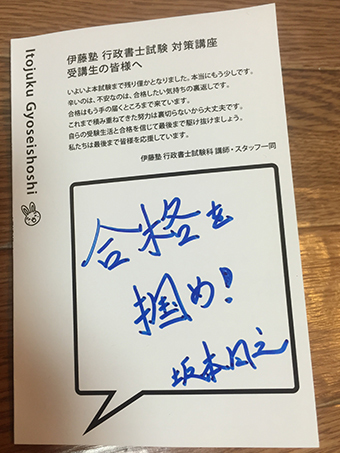 Itojuku Gyoseishoshi
伊藤塾 行政書士試験 対策講座
受講生の皆様へ
いよいよ本試験まで残り僅かとなりました。本当にもう少しです。
辛いのは、不安なのは、合格したい気持ちの裏返しです。
合格はもう手の届くところまで来ています。
これまで積み重ねてきた努力は裏切らないから大丈夫です。
自らの受験生活と合格を信じて最後まで駆け抜けましょう。
私たちは最後まで皆様を応援しています。
伊藤塾 行政書士試験科 講師・スタッフ一同
合格を
掴め!
坂本日之